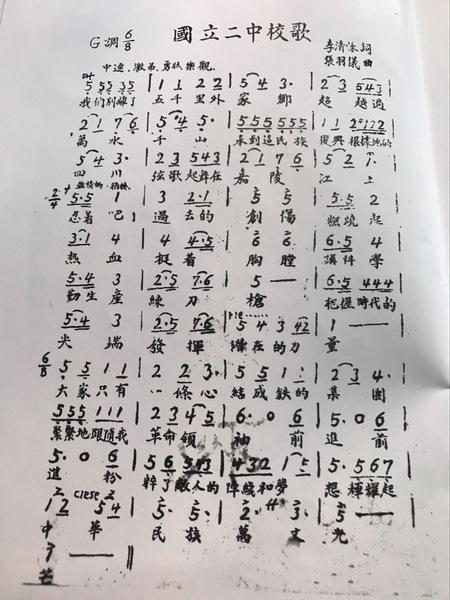 國立二中校歌
G調 6/8
李清悚 詞
張羽儀 曲
中速、激昂、勇壯樂觀
5 5 5 3 5 | 1 1 2 2 | 5 4 3· | 2 3 5 4 3 |
我們別離了 五千里外 家鄉 超越過
2 1 7 6 | 5 4 5· | 5 5 5 5 5 5 | 1 1 2
萬水 千山 來到這民族 復興根據地的
5 4 3· | 2 3 5 4 3 | 2 1 7 6 | 5 2 1·
四川 弦歌起舞在 嘉陵 江上
2/4 5·5 1 | 3 2·1 | 5 5 | 5·5 2
忍着吧 過去的 創傷 燃燒起
3·1 4 | 4 4·5 | 6 6 | 6·5 4
熱血 挺着 胸膛 講科學
5·4 3 | 2·5 7·6 | 5 — | 6·5 4 4 4
勤生產 練刀 槍 把握時代的
5·4 3 | 2·5 7·6 | 5 4 3 4 2 | 1 —
尖端 發揮 潛在的力 量
6/8 5 5 1 1 | 2 2 3· | 5 5 1 1 | 2 3 4·
大家只有 一條心 結成鐵的 集團
5 5 5 1 1 1 | 2 3 4 5 | 6· 0 6 | 5· 0 6
緊緊地跟隨我 革命領 袖 前 進 前
5· 0 6 | 5 6 5 4 3 | 4 3 2 1 5 | 5· 5 6 7
進 粉 粹了敵人的 陣綫和夢 想 輝耀起
1 2 5 4 | 5· 5· | 2· 3· | 5
中華 民族 萬丈光
1 — ‖
芒